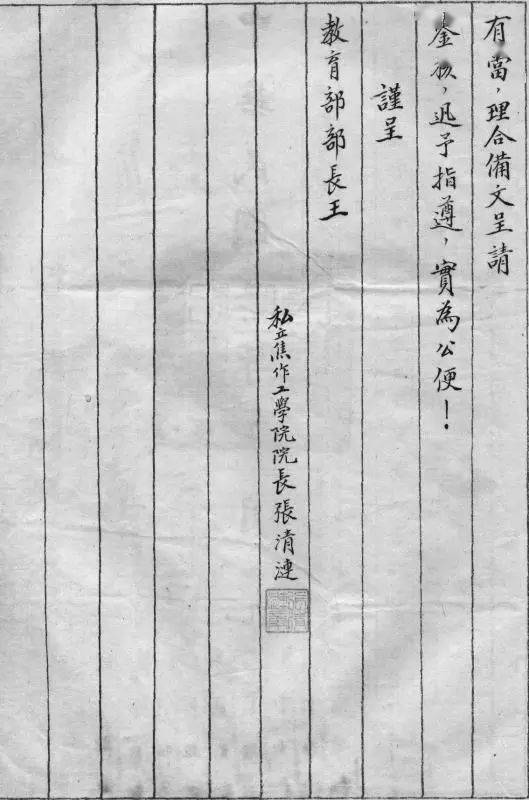 有當，理合備文呈請
鑒核，迅予指遵，實為公便！
謹呈
教育部部長王
私立焦作工學院院長張清漣